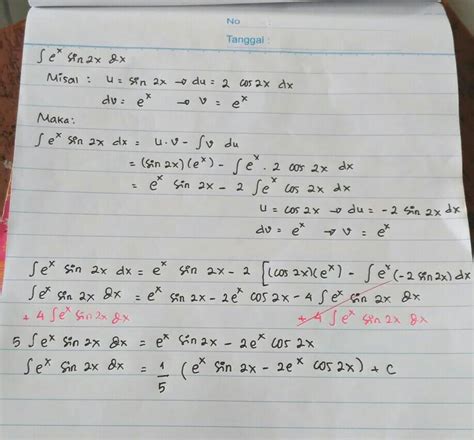 No
Tanggal :
∫e^x sin 2x dx
Misal : u = sin 2x → du = 2 cos 2x dx
dv = e^x → v = e^x
Maka:
∫e^x sin 2x dx = u·v - ∫v du
= (sin 2x)(e^x) - ∫e^x · 2 cos 2x dx
= e^x sin 2x - 2 ∫e^x cos 2x dx
u = cos 2x → du = -2 sin 2x dx
dv = e^x → v = e^x
∫e^x sin 2x dx = e^x sin 2x - 2 [(cos 2x)(e^x) - ∫e^x (-2 sin 2x) dx
∫e^x sin 2x dx = e^x sin 2x - 2e^x cos 2x - 4 ∫e^x sin 2x dx
+ 4 ∫e^x sin 2x dx + 4 ∫e^x sin 2x dx
5 ∫e^x sin 2x dx = e^x sin 2x - 2e^x cos 2x
∫e^x sin 2x dx = 1/5 (e^x sin 2x - 2e^x cos 2x) + C